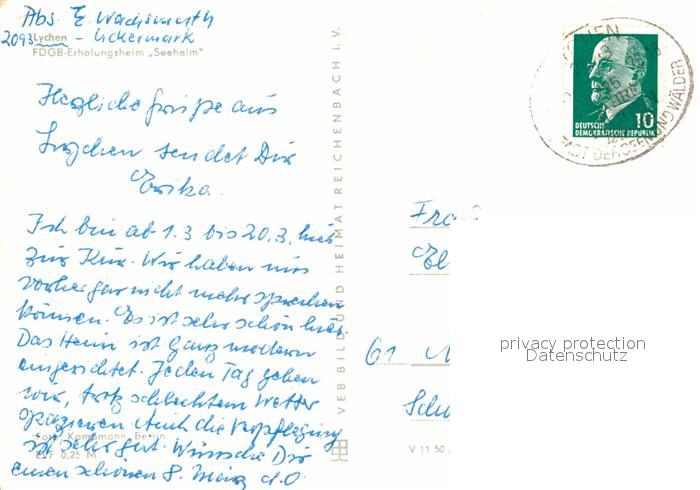 Abs. E. Wachsmuth
2093 Lychen - Uckermark
FDGB-Erholungsheim „Seeheim"
Herzliche Grüße aus
Lychen sendet Dir
Erika.
Ich bin ab 1.3 bis 20.3. hier
zur Kur. Wir haben uns
vorher gar nicht mehr sprechen
können. Es ist sehr schön hier.
Das Heim ist ganz modern
eingerichtet. Jeden Tag gehen
wir, trotz schlechtem Wetter
spazieren. Auch die Verpflegung
ist sehr gut. Wünsche Dir
einen schönen 8. März d.O.
Foto: Kampmann, Berlin
EVP 0,25 M
VEB BILD UND HEIMAT REICHENBACH I. V.
V 11 50
DEUTSCHE
DEMOKRATISCHE REPUBLIK
10
LYCHEN
STADT DER SEEN UND WÄLDER
Frau
El
61
Schu
privacy protection
Datenschutz